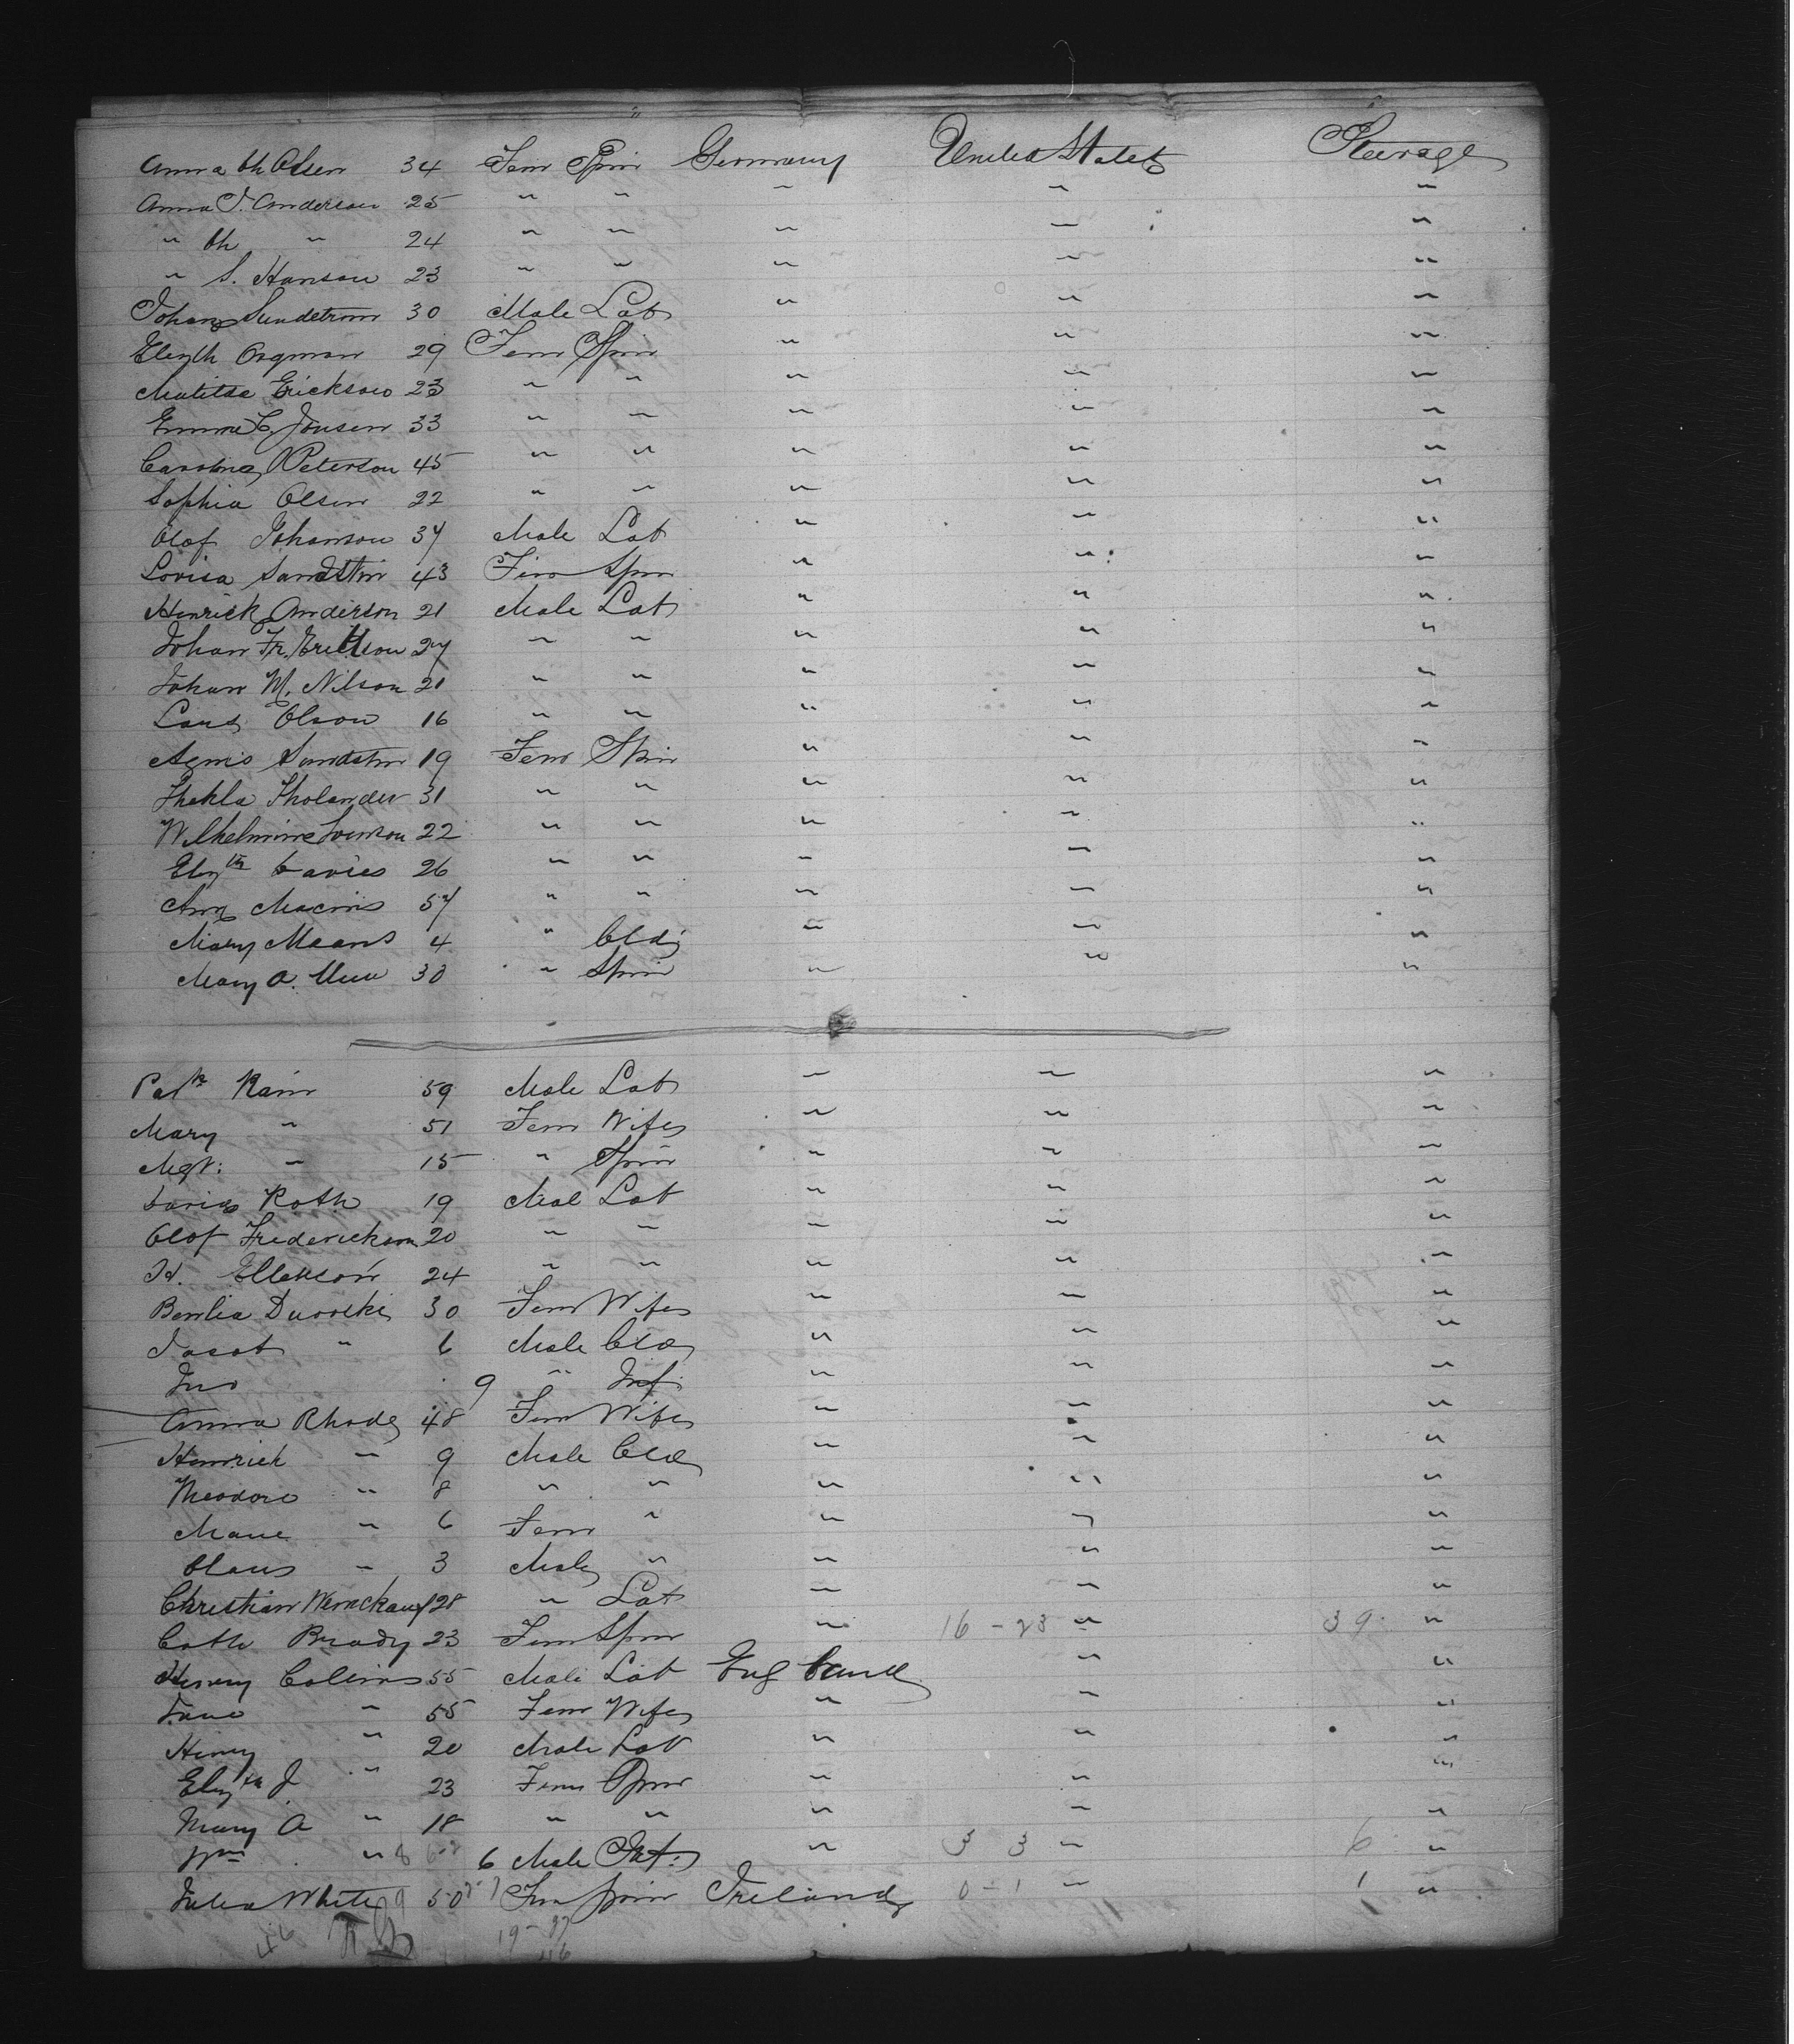 Anna Ch Olsen 34 Fem Spin Germany United States Steerage
Anna J. Anderson 25 " " " " "
" Ch " 24 " " " " "
" S. Hanson 23 " " " " "
Johan Sundstrom 30 Male Lab " " "
Elizth 29 Fem Spin " " "
Matilda Erickson 23 " " " " "
Emma C. Jonsen 33 " " " " "
Carolina Peterson 45 " " " " "
Sophia Olsen 22 " " " " "
Olof Johanson 34 Male Lab " " "
Lovisa Sandstin 43 Fem Spin " " "
Henrick Anderson 21 Male Lab " " "
Johan Fr. 27 " " " " "
Johan M. Nilson 21 " " " " "
Lars Olson 16 " " " " "
Agnis Sandstm 19 Fem Spin " " "
Thekla Tholander 31 " " " " "
Wilhelmina 22 " " " " "
Elizth Davies 26 " " " " "
Ann 57 " " " " "
Mary Means 4 " Cld " " "
Mary A. 30 " Spin " " "
Patk Kain 59 Male Lab " " "
Mary " 51 Fem Wife " " "
Mgt: " 15 " Spin " " "
David Roth 19 Mal Lab " " "
Olof Frederickson 20 " " " " "
H. Ellekson 24 " " " " "
30 Fem Wife " " "
Jacob " 6 Male Cld " " "
Jno 9 " Inf " " "
Anna Rhode 48 Fem Wife " " "
Henrich " 9 Male Cld " " "
Theodore " 8 " " " " "
Marie " 6 Fem " " " "
Claus " 3 Male " " " "
Christian 28 " Lab " " "
Cath Brady 23 Fem Spin " 16 - 23 " 39 "
Henry Collins 55 Male Lab England " "
Jane " 55 Fem Wife " " "
Henry " 20 Male Lab " " "
Elizth J. " 23 Fem Spin " " "
Mary A " 18 " " " " "
Wm " 6 Male Inf: " 3 3 " 6 "
Julia White 50 Fem Spin Ireland 0 - 1 " 1 "
46 19 - 27
46